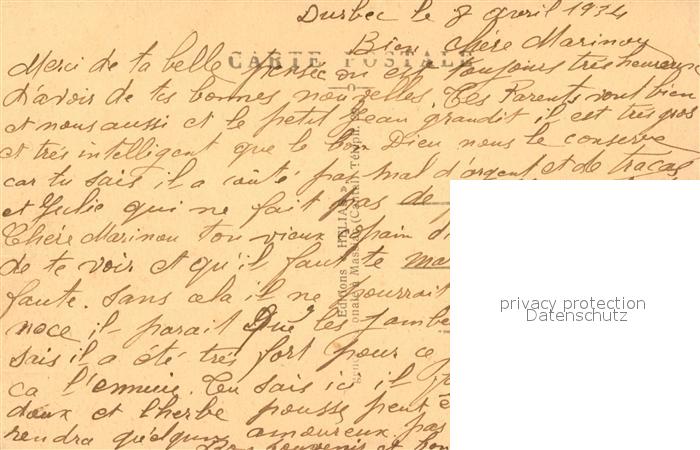 Durbec le 8 avril 1934
Bien chère Marinou
CARTE POSTALE
Merci de ta belle pensée on est toujours très heureux
d'avoir de tes bonnes nouvelles. Tes Parents vont bien
et nous aussi et le petit Jean grandit il est très gros
et très intelligent que le bon Dieu nous le conserve
car tu sais il a coûté pas mal d'argent et de tracas
et Julie qui ne fait pas de
Chère Marinou ton vieux
de te voir et qu'il faut te
faute. Sans cela il ne pourrait
noce il parait que les jambe
sais il a été très fort pour ce
ça l'ennuie. Tu sais ici il
doux et l'herbe pousse peut
rendra quelqun amoureux pas
Editions HÉLIAN
privacy protection
Datenschutz